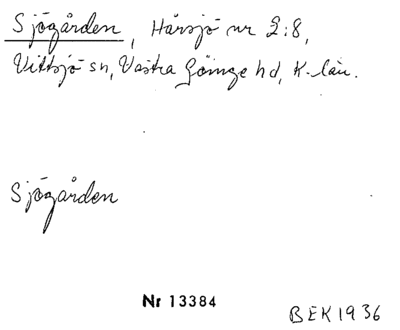 Sjögården, Hårsjö nr 2:8,
Vittsjö sn, Västra Göinge hd, K-län.
Sjögården
Nr 13384
BEK 1936